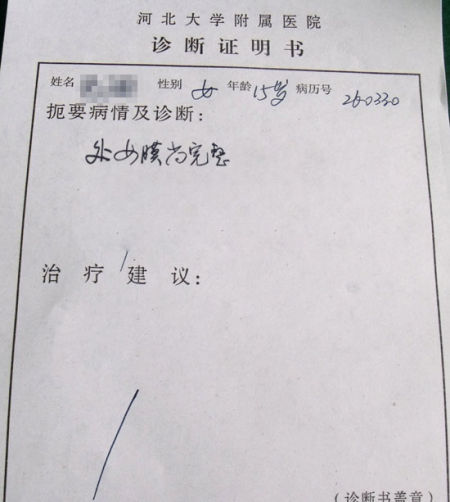 河北大学附属医院
诊断证明书
姓名 性别 女 年龄 15岁 病历号 260330
扼要病情及诊断：
处女膜尚完整
治疗建议：
（诊断书盖章）